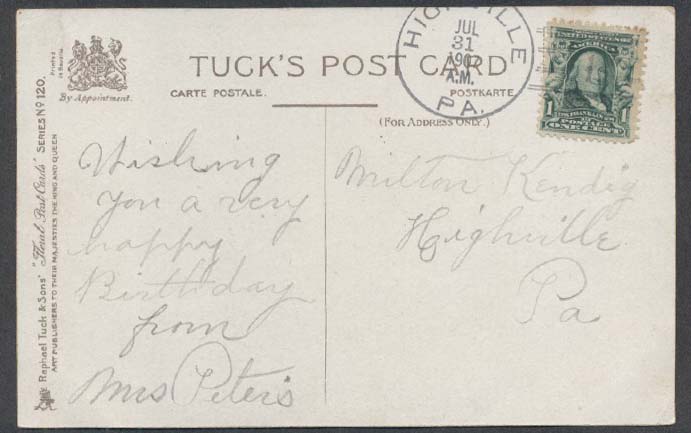 Printed
in Bavaria
By Appointment.
TUCK'S POST CARD
CARTE POSTALE.
POSTKARTE
(FOR ADDRESS ONLY.)
HIGHVILLE
JUL
31
1907
A.M.
PA.
UNITED STATES OF
AMERICA
1 1
POSTAGE
ONE CENT
Raphael Tuck & Sons' "Floral Post Cards" SERIES Nº 120.
ART PUBLISHERS TO THEIR MAJESTIES THE KING AND QUEEN
Wishing
you a very
happy
Birthday
from
Mrs Peters
Milton Kendig
Highville
Pa